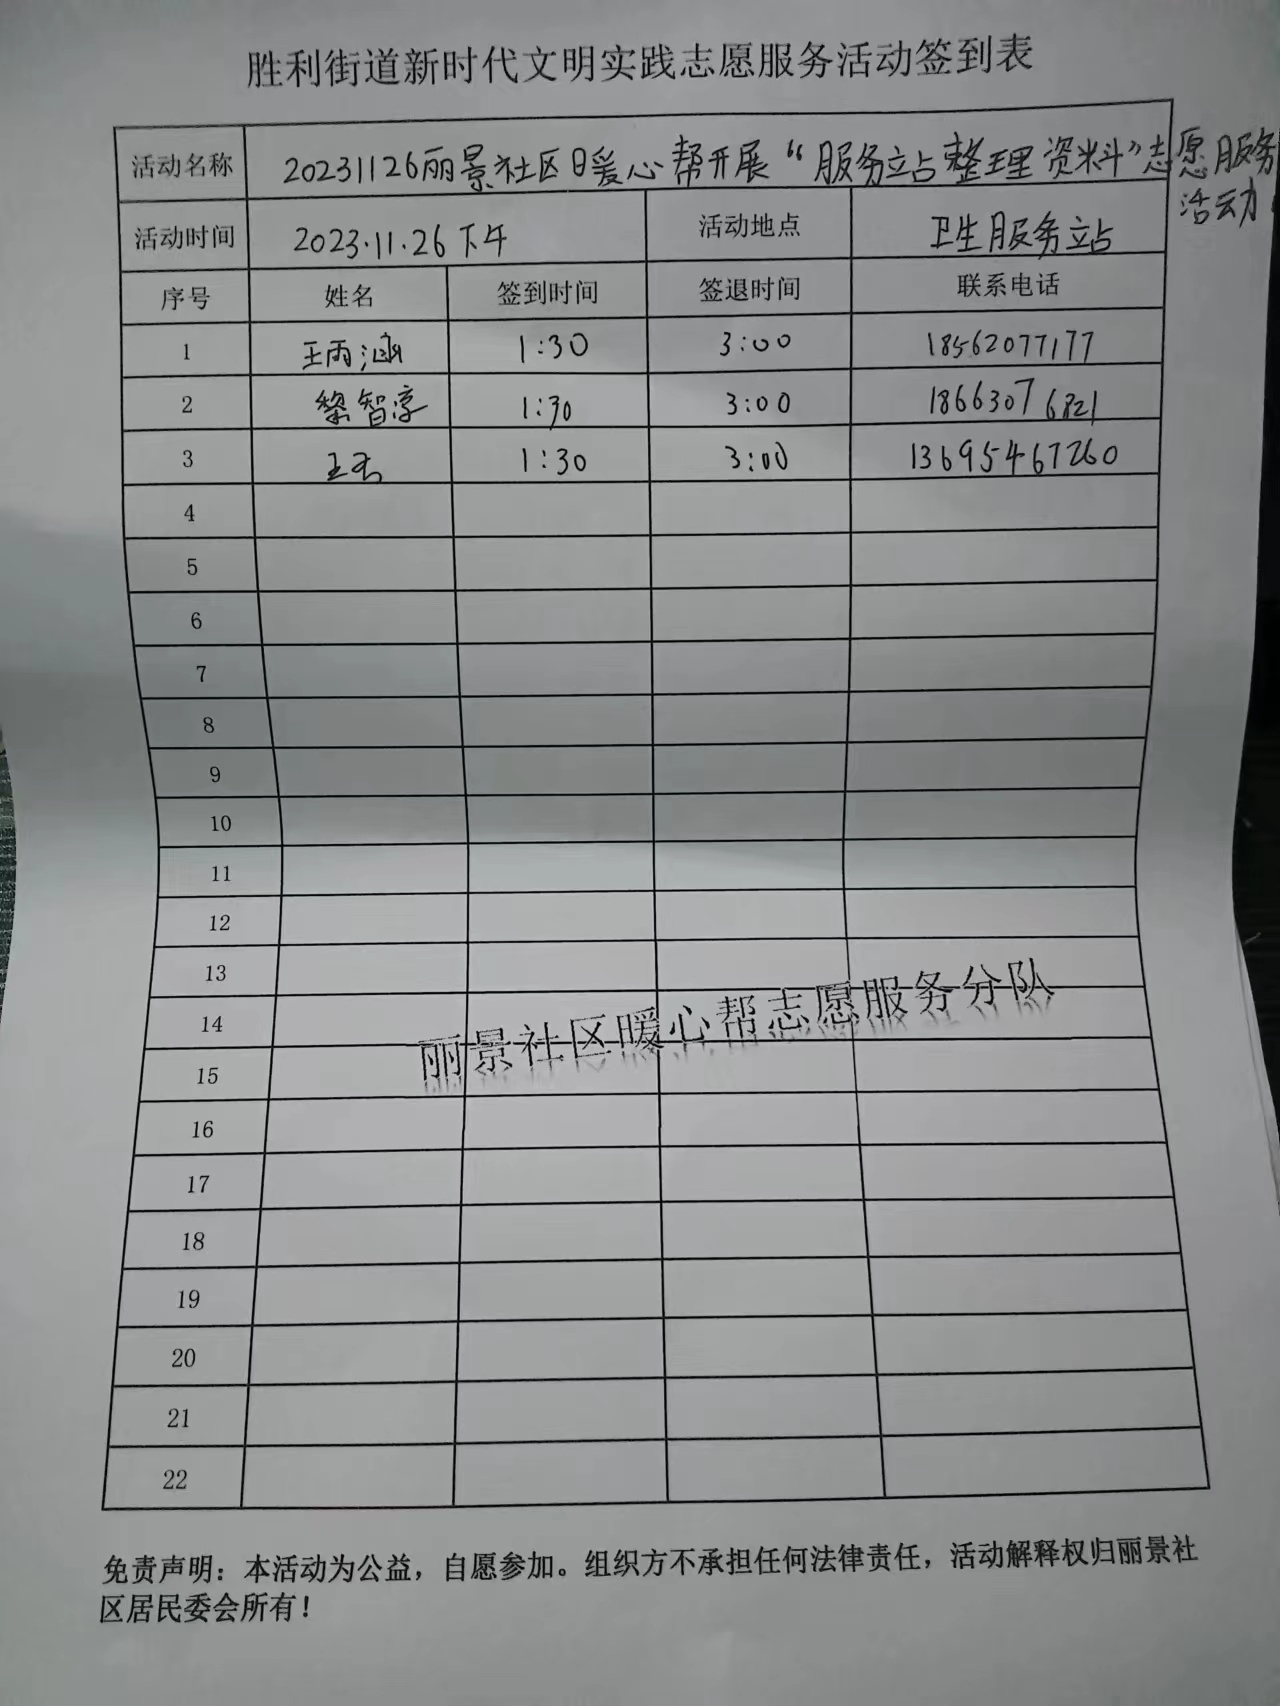 胜利街道新时代文明实践志愿服务活动签到表
活动名称 20231126丽景社区暖心帮开展“服务站整理资料”志愿服务
活动
活动时间 2023.11.26下午 活动地点 卫生服务站
序号 姓名 签到时间 签退时间 联系电话
1 王丙涵 1:30 3:00 18562077177
2 黎智淳 1:30 3:00 18663076821
3 王 1:30 3:00 13695467260
4
5
6
7
8
9
10
11
12
13
14
15
丽景社区暖心帮志愿服务分队
16
17
18
19
20
21
22
免责声明：本活动为公益，自愿参加。组织方不承担任何法律责任，活动解释权归丽景社
区居民委会所有！